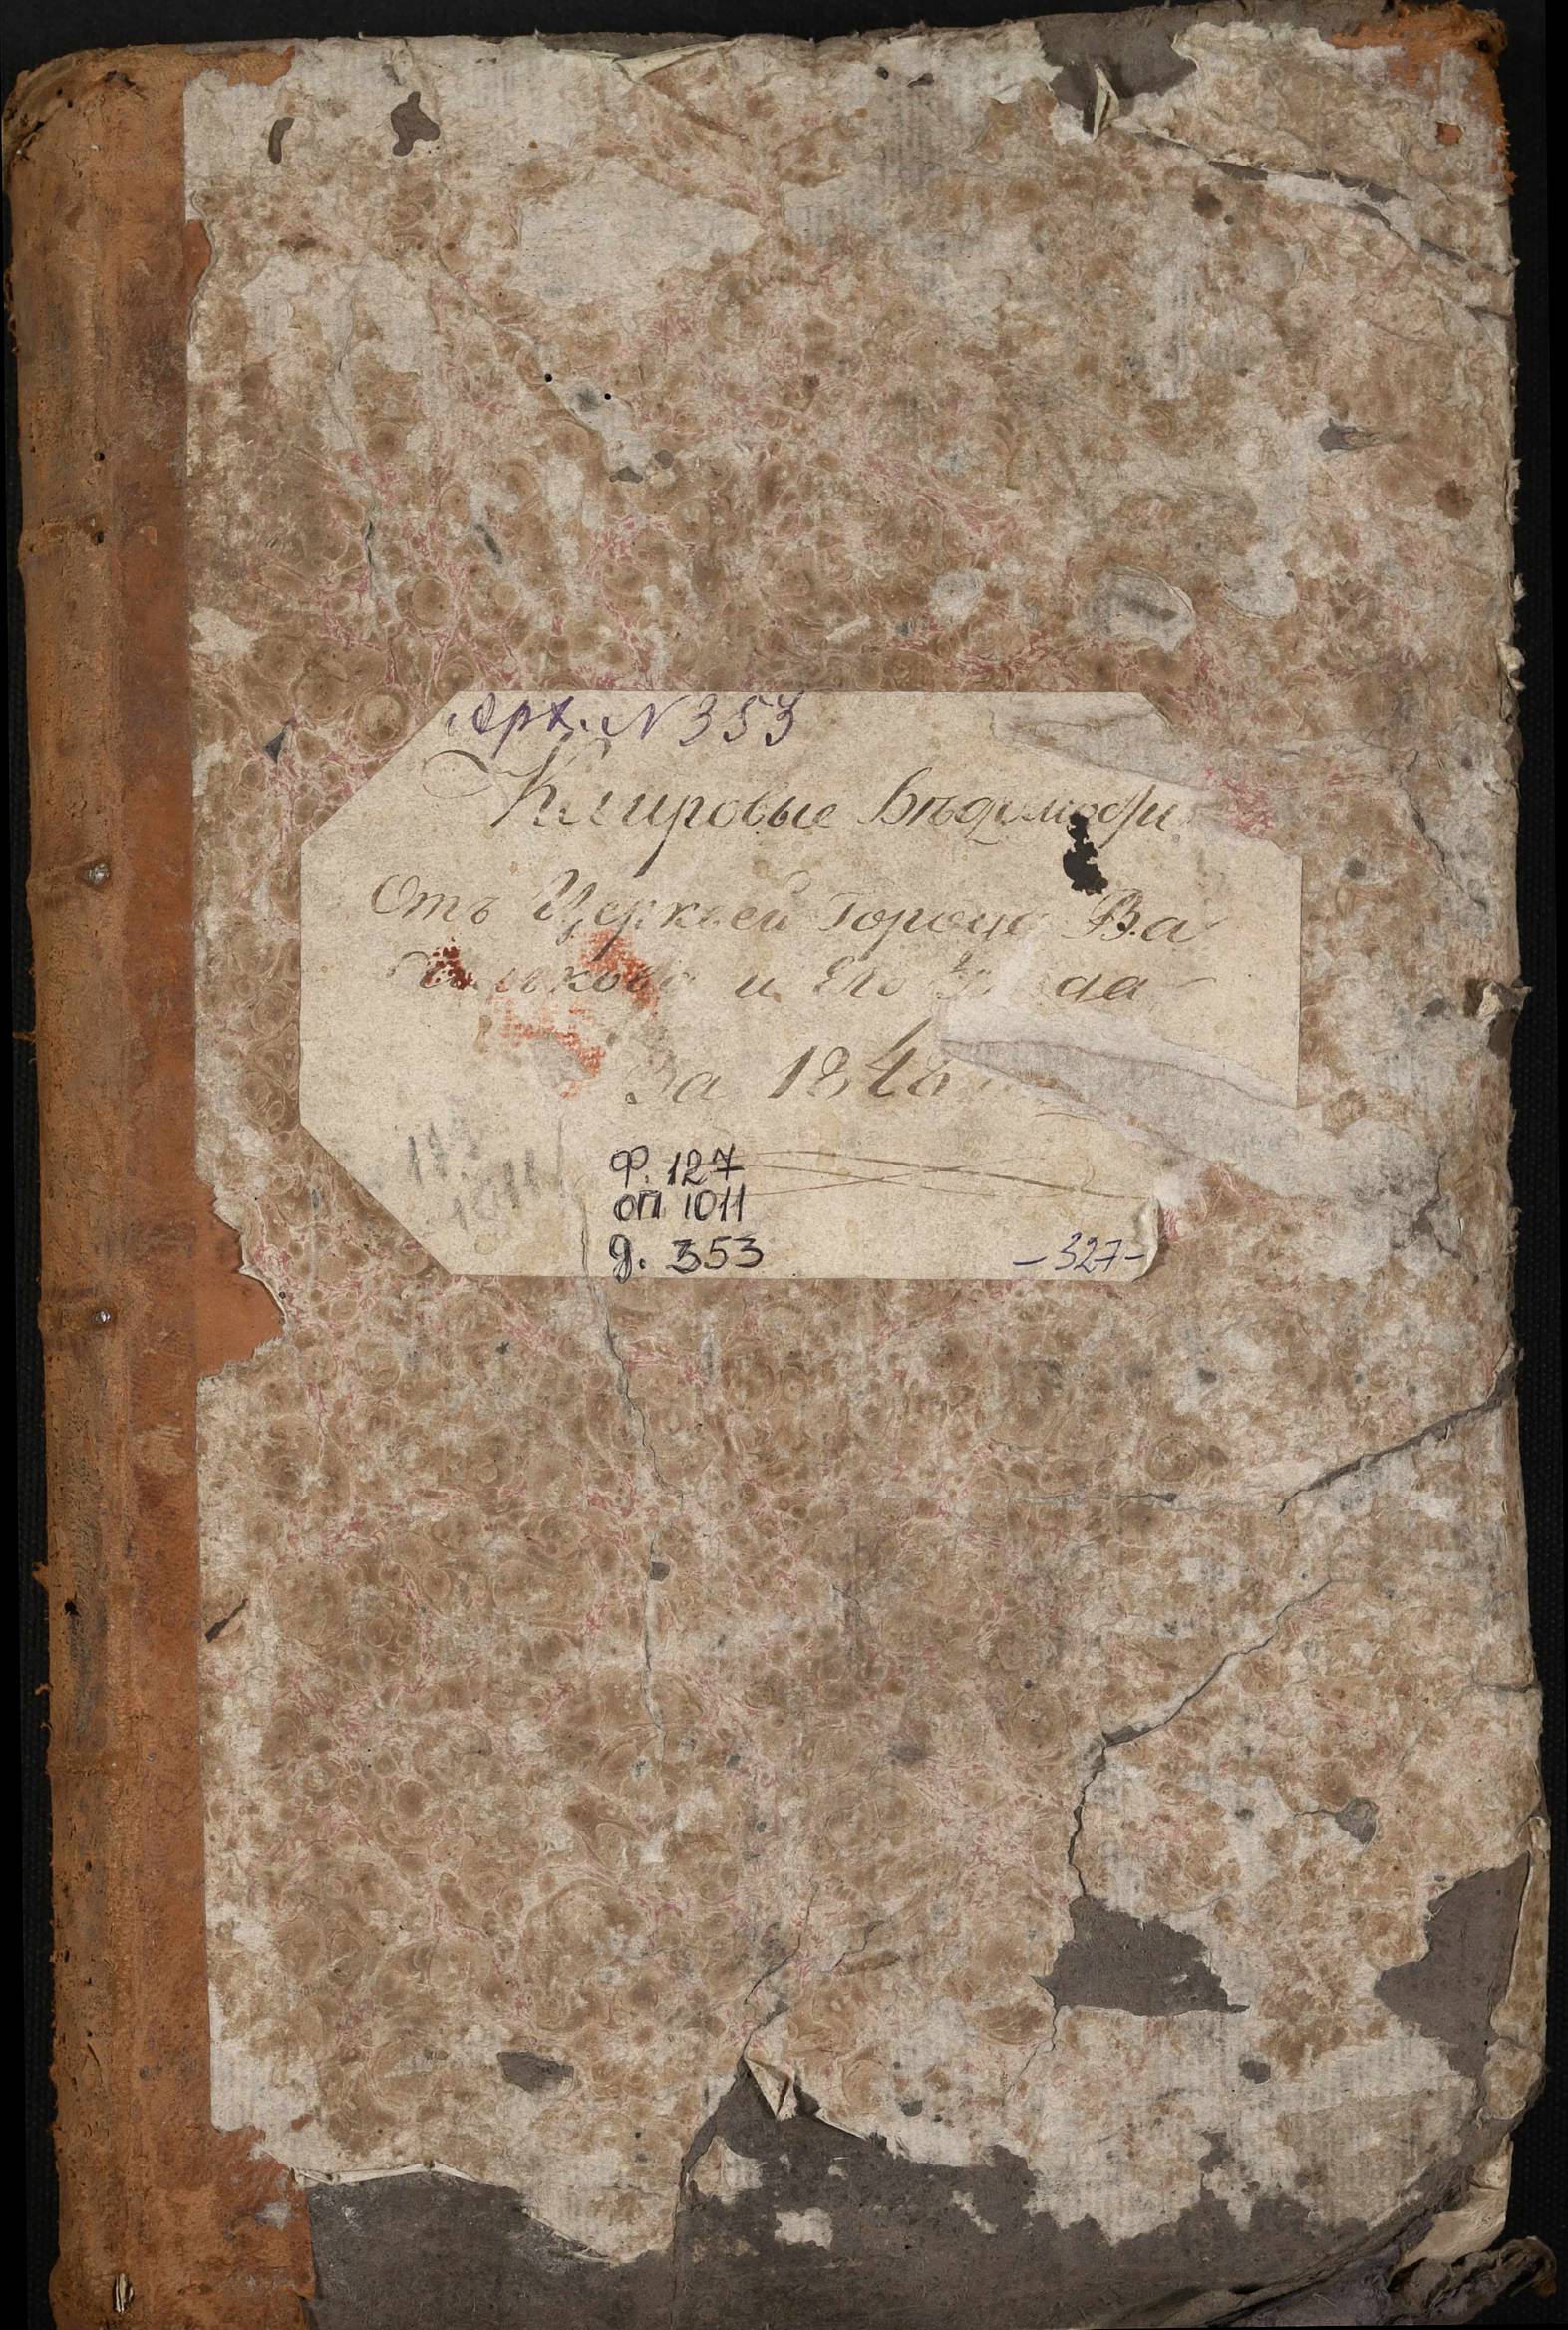 Арх. N 353
Клировые Вѣдомости
Отъ Церквей Города Ва
сильков и Его уезда
За 1848
Ф. 127
оп 1011
д. 353
-327-